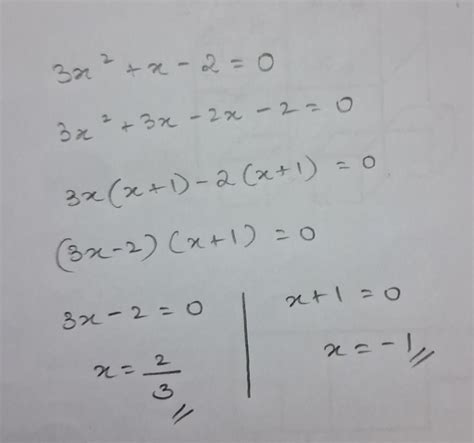 3x² + x - 2 = 0
3x² + 3x - 2x - 2 = 0
3x(x+1) - 2(x+1) = 0
(3x-2)(x+1) = 0
3x - 2 = 0
x = 2/3
x + 1 = 0
x = -1